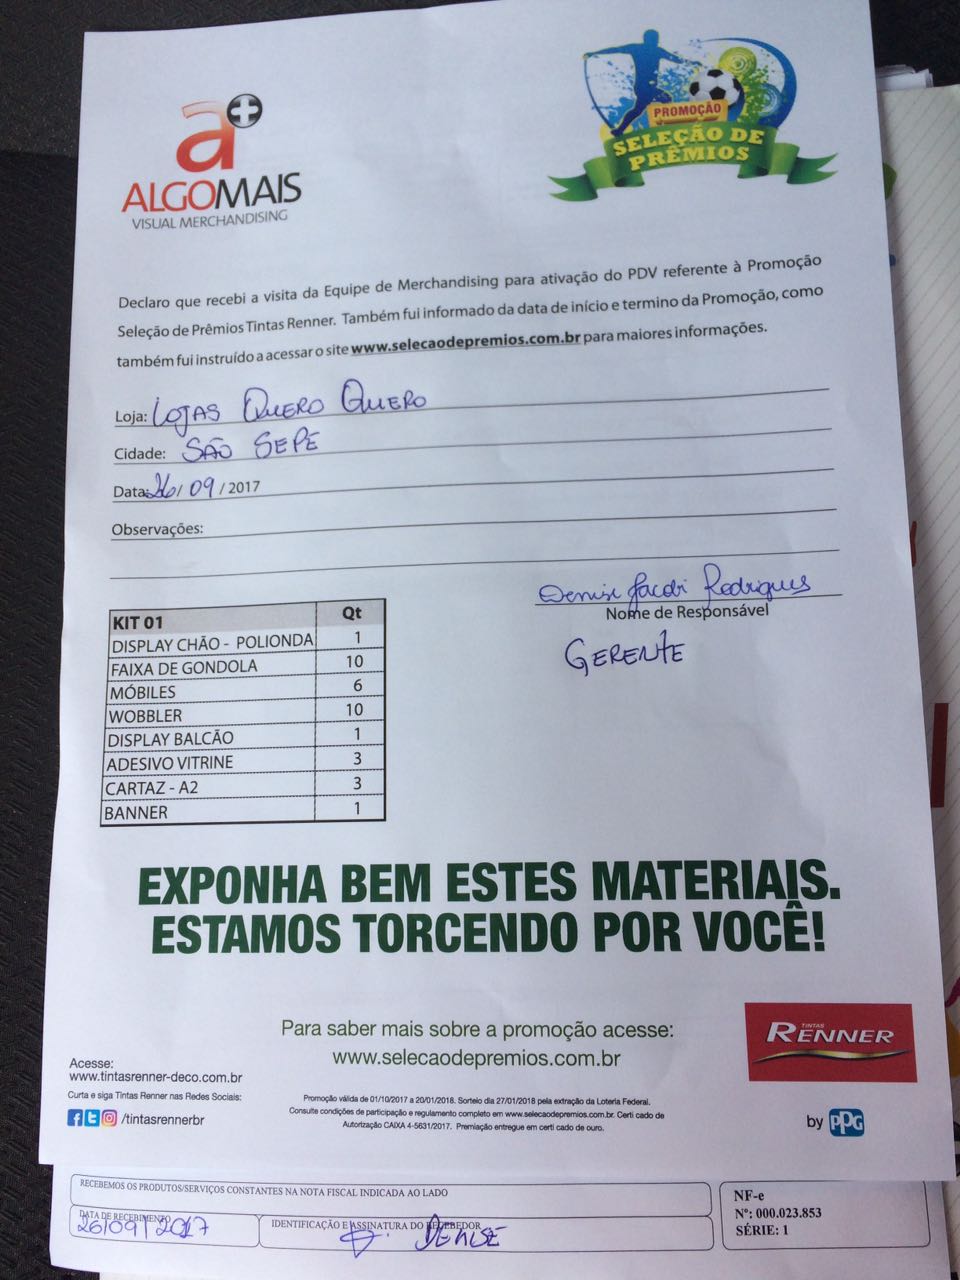 a+
ALGOMAIS
VISUAL MERCHANDISING
PROMOÇÃO
SELEÇÃO DE
PRÊMIOS
Declaro que recebi a visita da Equipe de Merchandising para ativação do PDV referente à Promoção
Seleção de Prêmios Tintas Renner. Também fui informado da data de início e termino da Promoção, como
também fui instruído a acessar o site www.selecaodepremios.com.br para maiores informações.
Loja: LOJAS QUERO QUERO
Cidade: SÃO SEPÉ
Data: 26/ 09 / 2017
Observações:
Denise Jacobi Rodrigues
Nome de Responsável
GERENTE
KIT 01 Qt
DISPLAY CHÃO - POLIONDA 1
FAIXA DE GONDOLA 10
MÓBILES 6
WOBBLER 10
DISPLAY BALCÃO 1
ADESIVO VITRINE 3
CARTAZ - A2 3
BANNER 1
EXPONHA BEM ESTES MATERIAIS.
ESTAMOS TORCENDO POR VOCÊ!
Para saber mais sobre a promoção acesse:
www.selecaodepremios.com.br
TINTAS
RENNER
Acesse:
www.tintasrenner-deco.com.br
Curta e siga Tintas Renner nas Redes Sociais:
/tintasrennerbr
Promoção válida de 01/10/2017 a 20/01/2018. Sorteio dia 27/01/2018 pela extração da Loteria Federal.
Consulte condições de participação e regulamento completo em www.selecaodepremios.com.br. Certi cado de
Autorização CAIXA 4-5631/2017. Premiação entregue em certi cado de ouro.
by PPG
RECEBEMOS OS PRODUTOS/SERVIÇOS CONSTANTES NA NOTA FISCAL INDICADA AO LADO
DATA DE RECEBIMENTO
26/09/2017
IDENTIFICAÇÃO E ASSINATURA DO RECEBEDOR
DENISE
NF-e
Nº: 000.023.853
SÉRIE: 1